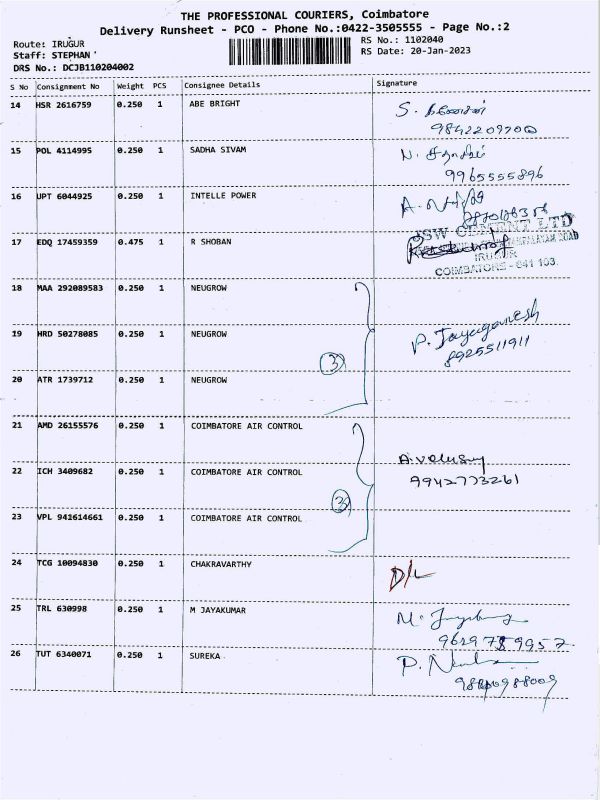 THE PROFESSIONAL COURIERS, Coimbatore
Delivery Runsheet - PCO - Phone No.:0422-3505555 - Page No.:2
Route: IRUGUR
RS No.: 1102040
Staff: STEPHAN
RS Date: 20-Jan-2023
DRS No.: DCJB110204002
S No Consignment No Weight PCS Consignee Details Signature
14 HSR 2616759 0.250 1 ABE BRIGHT
S. கணேசன்
9842209700
15 POL 4114995 0.250 1 SADHA SIVAM
N. சதாசிவம்
9965555896
16 UPT 6044925 0.250 1 INTELLE POWER
17 EDQ 17459359 0.475 1 R SHOBAN
JSW CEMENT LTD
IRUGUR
COIMBATORE - 641 103.
18 MAA 292089583 0.250 1 NEUGROW
19 HRD 50278085 0.250 1 NEUGROW
P. Jayaganesh
8925511911
3
20 ATR 1739712 0.250 1 NEUGROW
21 AMD 26155576 0.250 1 COIMBATORE AIR CONTROL
22 ICH 3409682 0.250 1 COIMBATORE AIR CONTROL
A.Velusamy
9942773261
3
23 VPL 941614661 0.250 1 COIMBATORE AIR CONTROL
24 TCG 10094830 0.250 1 CHAKRAVARTHY
D/L
25 TRL 630998 0.250 1 M JAYAKUMAR
9629789957
26 TUT 6340071 0.250 1 SUREKA